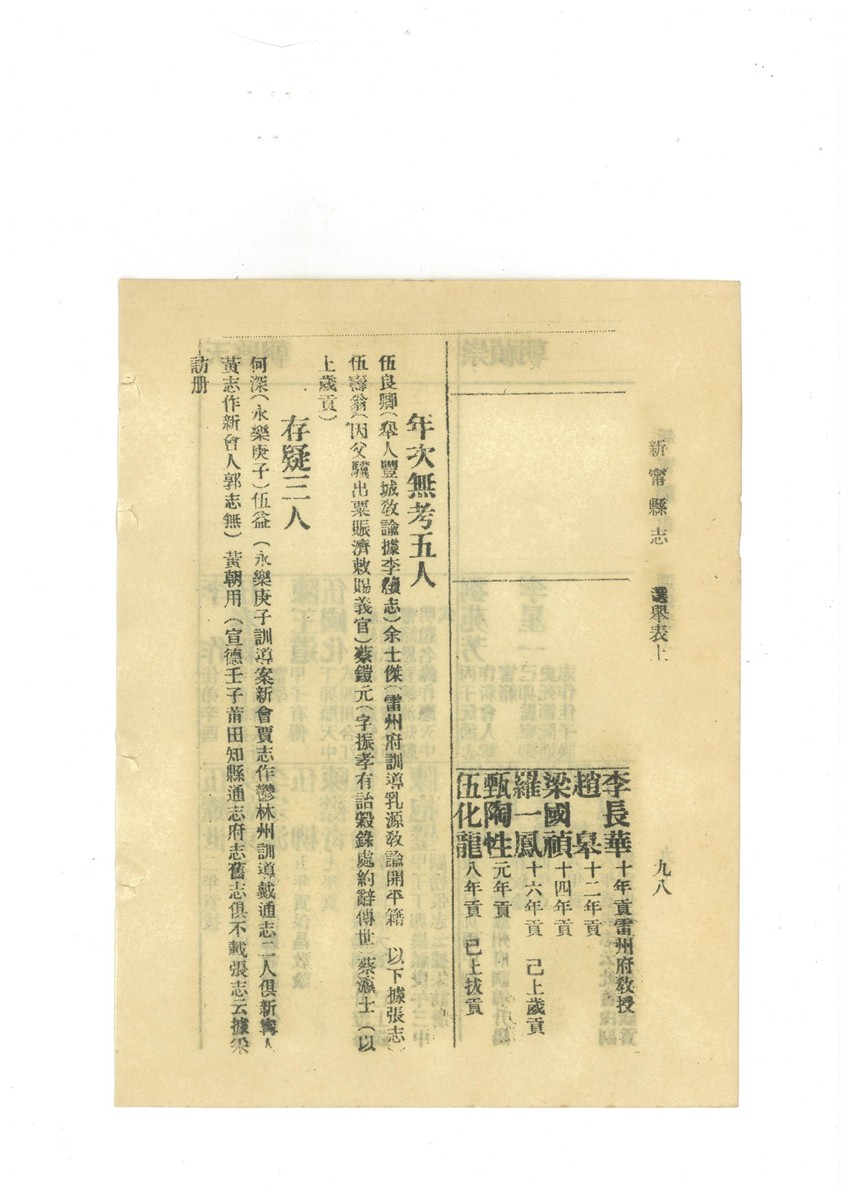 新甯縣志　選舉表上　九八
李長華　十年貢雷州府教授
趙　皋　十二年貢
梁國禎　十四年貢
羅一鳳　十六年貢　已上歲貢
甄陶性　元年貢
伍化龍　八年貢　已上拔貢
年次無考五人
伍良卿（舉人豐城敎諭據李續志）余士傑（雷州府訓導乳源敎諭開平籍　以下據張志）
伍壽翁（因父驥出粟賑濟敕賜義官）蔡鎧元（字振孝有詒穀錄處約辭傳世　蔡瀛士（以
上歲貢）
存疑三人
何深（永樂庚子）伍益（永樂庚子訓導案新會賈志作鬱林州訓導戴通志二人俱新寗人
黃志作新會人郭志無）黃朝用（宣德壬子莆田知縣通志府志舊志俱不載張志云據梁
訪册